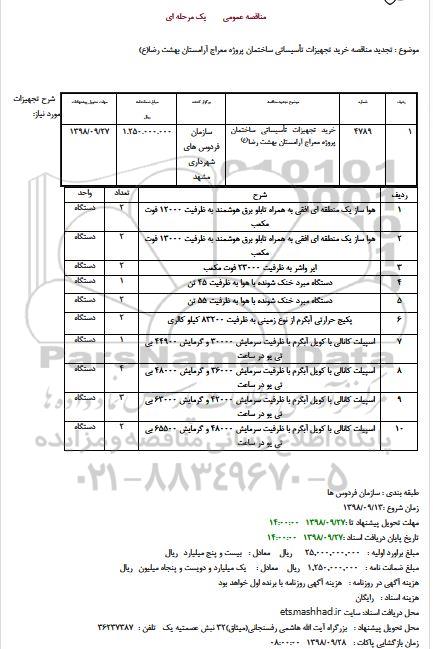 مناقصه عمومی یک مرحله ای
موضوع : تجدید مناقصه خرید تجهیزات تأسیساتی ساختمان پروژه معراج آرامستان بهشت رضا(ع)
شرح تجهیزات مورد نیاز:
ردیف شماره موضوع تجدید مناقصه برگزار کننده مبلغ ضمانتنامه ریال مهلت تحویل پیشنهادات
۱ ۴۷۸۹ خرید تجهیزات تأسیساتی ساختمان پروژه معراج آرامستان بهشت رضا(ع) سازمان فردوس های شهرداری مشهد ۱.۲۵۰.۰۰۰.۰۰۰ ۱۳۹۸/۰۹/۲۷
ردیف شرح تعداد واحد
۱ هوا ساز یک منطقه ای افقی به همراه تابلو برق هوشمند به ظرفیت ۱۲۰۰۰ فوت مکعب ۲ دستگاه
۲ هوا ساز یک منطقه ای افقی به همراه تابلو برق هوشمند به ظرفیت ۱۳۰۰۰ فوت مکعب ۲ دستگاه
۳ ایر واشر به ظرفیت ۲۳۰۰۰ فوت مکعب ۲ دستگاه
۴ دستگاه مبرد خنک شونده با هوا به ظرفیت ۴۵ تن ۱ دستگاه
۵ دستگاه مبرد خنک شونده با هوا به ظرفیت ۵۵ تن ۲ دستگاه
۶ پکیج حرارتی آبگرم از نوع زمینی به ظرفیت ۸۳۲۰۰ کیلو کالری ۲ دستگاه
۷ اسپیلت کانالی با کویل آبگرم با ظرفیت سرمایش ۳۰۰۰۰ و گرمایش ۴۴۹۰۰ بی تی یو در ساعت ۱ دستگاه
۸ اسپیلت کانالی با کویل آبگرم با ظرفیت سرمایش ۳۶۰۰۰ و گرمایش ۴۸۰۰۰ بی تی یو در ساعت ۴ دستگاه
۹ اسپیلت کانالی با کویل آبگرم با ظرفیت سرمایش ۴۲۰۰۰ و گرمایش ۶۳۰۰۰ بی تی یو در ساعت ۳ دستگاه
۱۰ اسپیلت کانالی با کویل آبگرم با ظرفیت سرمایش ۴۸۰۰۰ و گرمایش ۶۵۵۰۰ بی تی یو در ساعت ۲ دستگاه
ParsNamadData
پایگاه اطلاع رسانی مناقصه و مزایده
۰۲۱-۸۸۳۴۹۶۷۰-۵
طبقه بندی : سازمان فردوس ها
زمان شروع :۱۳۹۸/۰۹/۱۳
مهلت تحویل پیشنهاد تا :۱۳۹۸/۰۹/۲۷ ۱۴:۰۰:۰۰
تاریخ پایان دریافت اسناد :۱۳۹۸/۰۹/۲۷ ۱۴:۰۰:۰۰
مبلغ براورد اولیه : ۲۵,۰۰۰,۰۰۰,۰۰۰ ریال معادل : بیست و پنج میلیارد ریال
مبلغ ضمانت نامه : ۱,۲۵۰,۰۰۰,۰۰۰ ریال معادل : یک میلیارد و دویست و پنجاه میلیون ریال
هزینه آگهی در روزنامه : هزینه آگهی روزنامه با برنده اول خواهد بود
هزینه اسناد : رایگان
محل دریافت اسناد: سایت ets.mashhad.ir
محل تحویل پیشنهاد : بزرگراه آیت الله هاشمی رفسنجانی(میثاق)۳۲ نبش عصمتیه یک تلفن : ۳۶۲۳۷۳۸۷
زمان بازگشایی پاکات : ۱۳۹۸/۰۹/۲۸ ۰۸:۰۰:۰۰